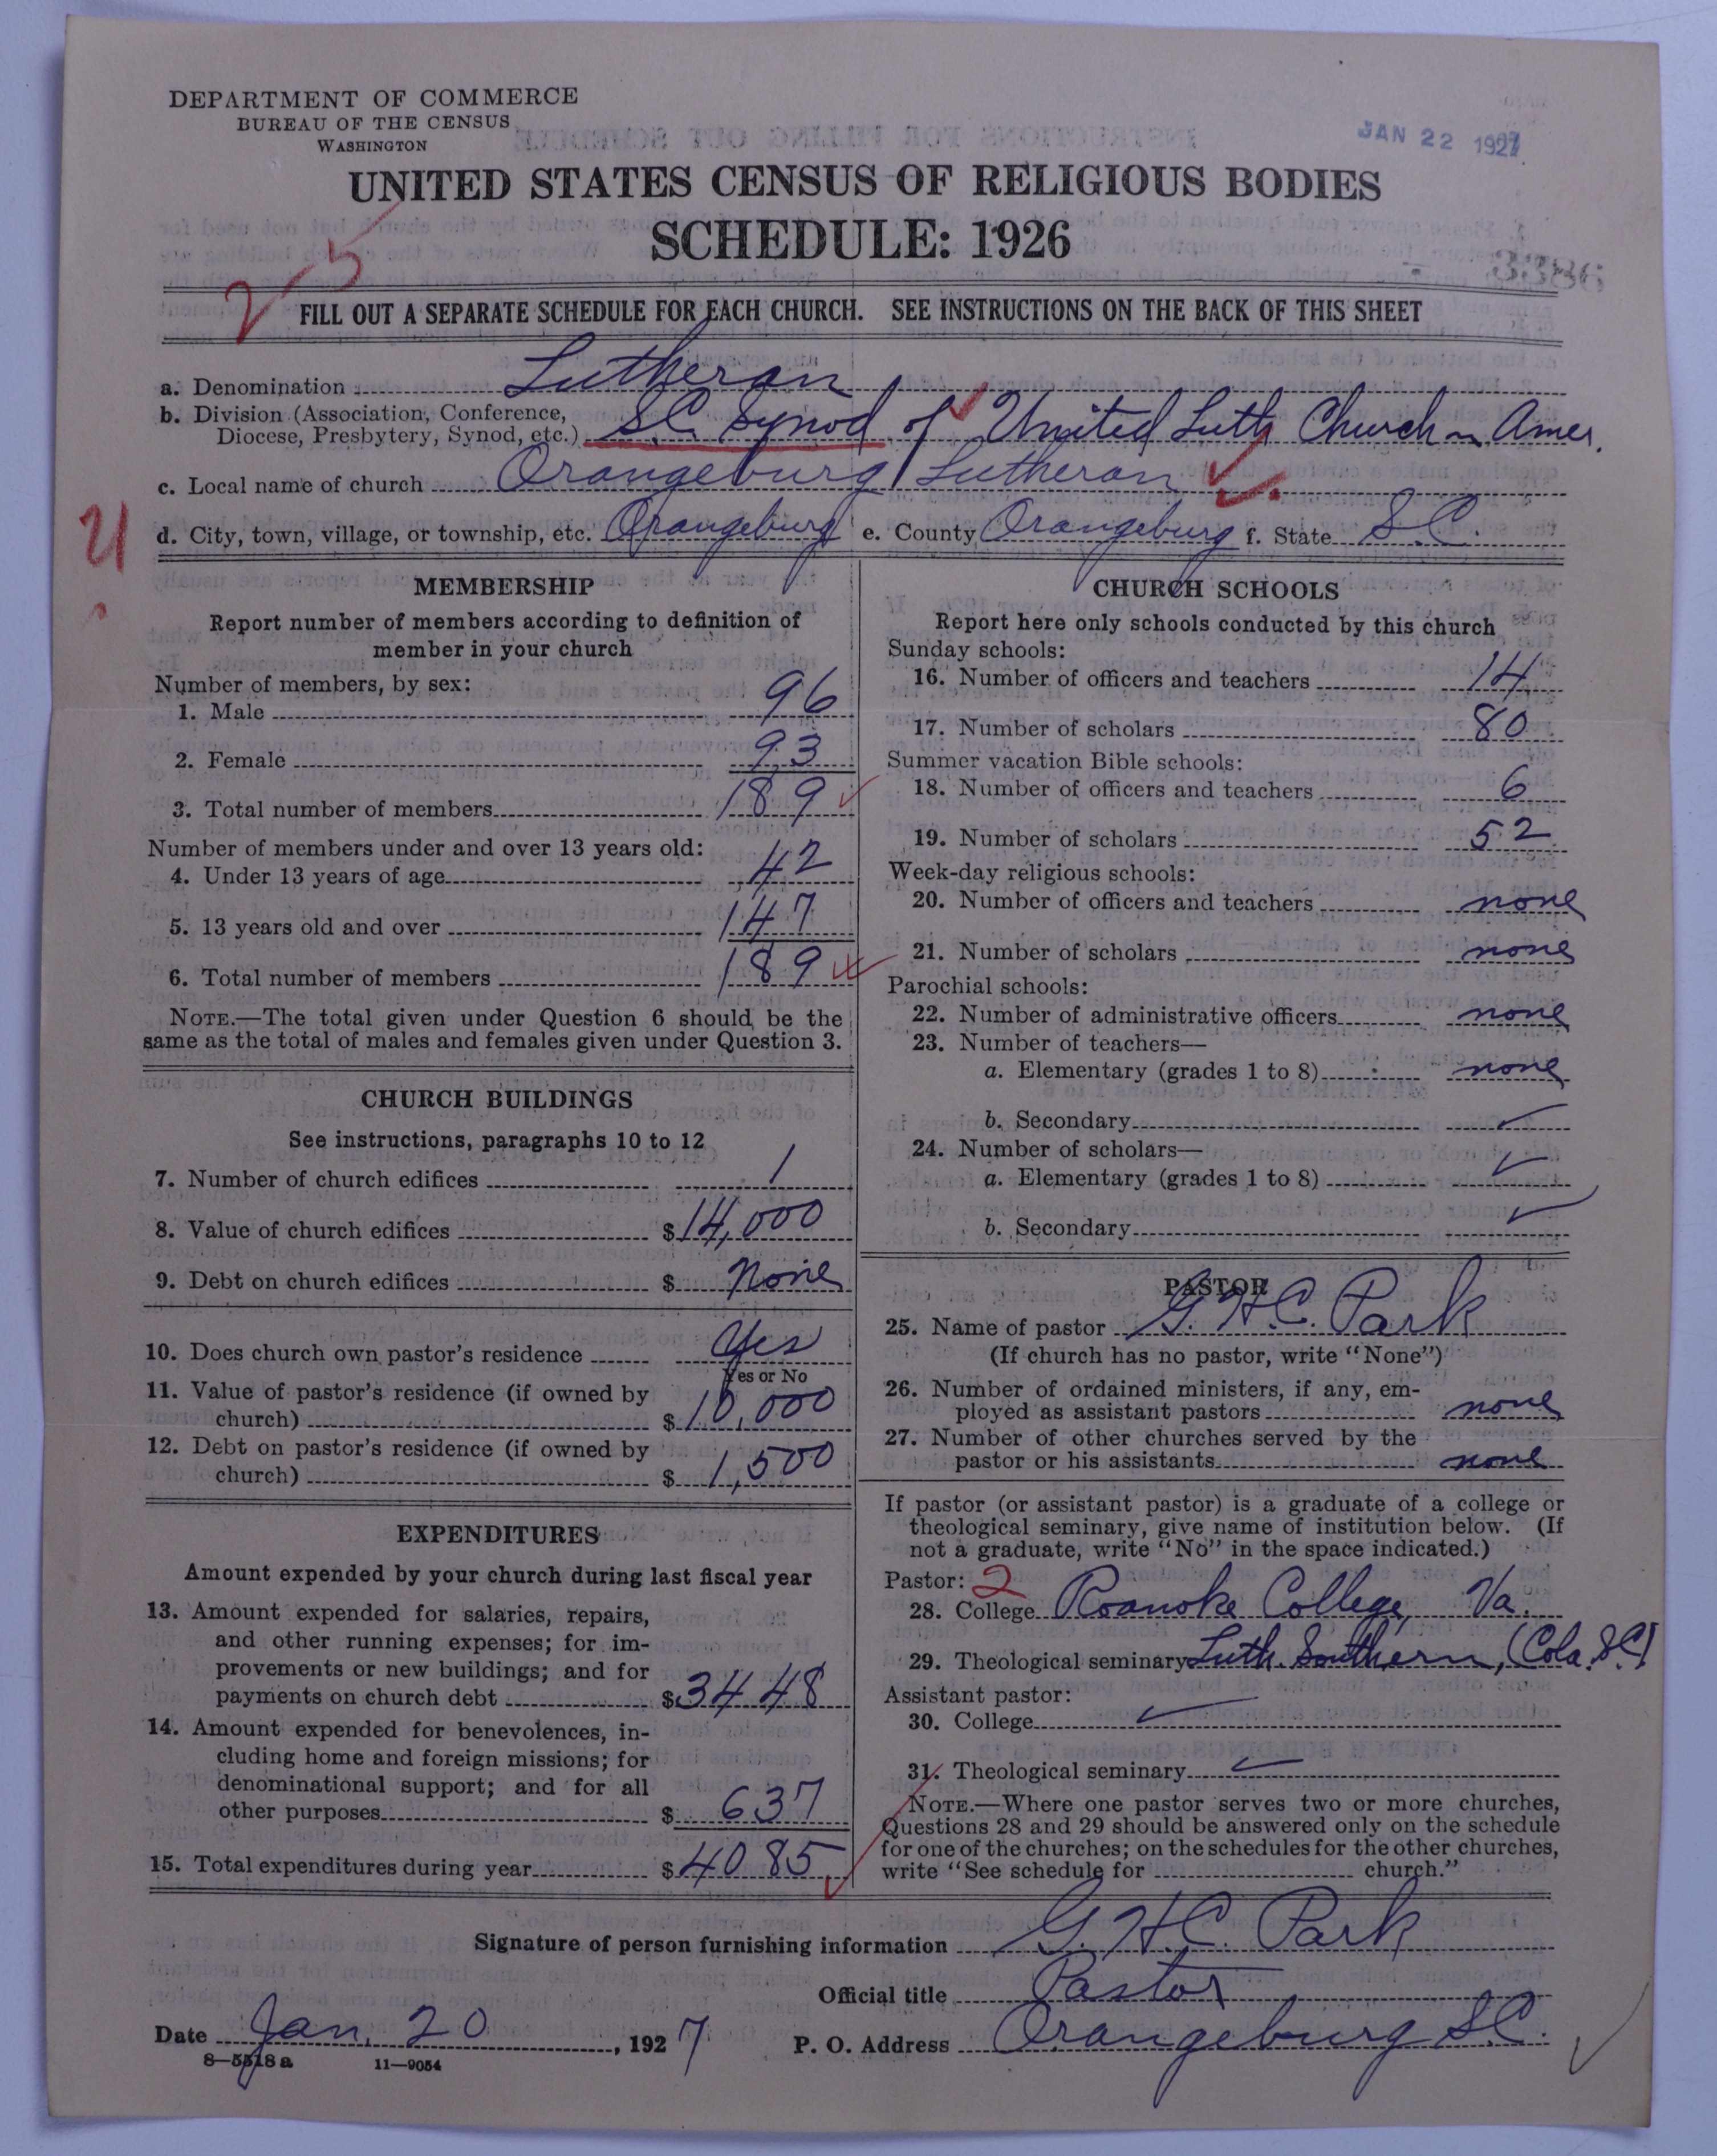 DEPARTMENT OF COMMERCE
BUREAU OF THE CENSUS
WASHINGTON
JAN 22 1927
UNITED STATES CENSUS OF RELIGIOUS BODIES
SCHEDULE: 1926
25
3386
FILL OUT A SEPARATE SCHEDULE FOR EACH CHURCH. SEE INSTRUCTIONS ON THE BACK OF THIS SHEET
a. Denomination Lutheran
b. Division (Association, Conference,
Diocese, Presbytery, Synod, etc.) S.C. Synod of United Luth Church in Amer.
c. Local name of church Orangeburg Lutheran
d. City, town, village, or township, etc. Orangeburg e. County Orangeburg f. State S.C.
MEMBERSHIP
Report number of members according to definition of
member in your church
Number of members, by sex:
1. Male 96
2. Female 93
3. Total number of members 189
Number of members under and over 13 years old:
4. Under 13 years of age 42
5. 13 years old and over 147
6. Total number of members 189
NOTE.—The total given under Question 6 should be the
same as the total of males and females given under Question 3.
CHURCH BUILDINGS
See instructions, paragraphs 10 to 12
7. Number of church edifices 1
8. Value of church edifices $14,000
9. Debt on church edifices $ None
10. Does church own pastor's residence Yes
Yes or No
11. Value of pastor's residence (if owned by
church) $10,000
12. Debt on pastor's residence (if owned by
church) $1,500
EXPENDITURES
Amount expended by your church during last fiscal year
13. Amount expended for salaries, repairs,
and other running expenses; for im-
provements or new buildings; and for
payments on church debt $3448
14. Amount expended for benevolences, in-
cluding home and foreign missions; for
denominational support; and for all
other purposes $637
15. Total expenditures during year $4085
CHURCH SCHOOLS
Report here only schools conducted by this church
Sunday schools:
16. Number of officers and teachers 14
17. Number of scholars 80
Summer vacation Bible schools:
18. Number of officers and teachers 6
19. Number of scholars 52
Week-day religious schools:
20. Number of officers and teachers none
21. Number of scholars none
Parochial schools:
22. Number of administrative officers none
23. Number of teachers—
a. Elementary (grades 1 to 8) none
b. Secondary ✓
24. Number of scholars—
a. Elementary (grades 1 to 8) ✓
b. Secondary ✓
PASTOR
25. Name of pastor G. H. C. Park
(If church has no pastor, write "None")
26. Number of ordained ministers, if any, em-
ployed as assistant pastors none
27. Number of other churches served by the
pastor or his assistants none
If pastor (or assistant pastor) is a graduate of a college or
theological seminary, give name of institution below. (If
not a graduate, write "No" in the space indicated.)
Pastor: 2
28. College Roanoke College, Va.
29. Theological seminary Luth. Southern, (Cola. S.C.)
Assistant pastor:
30. College ✓
31. Theological seminary ✓
NOTE.—Where one pastor serves two or more churches,
Questions 28 and 29 should be answered only on the schedule
for one of the churches; on the schedules for the other churches,
write "See schedule for church."
Signature of person furnishing information G. H. C. Park
Official title Pastor
Date Jan. 20, 1927 P. O. Address Orangeburg S.C.
8—5518a 11—9054